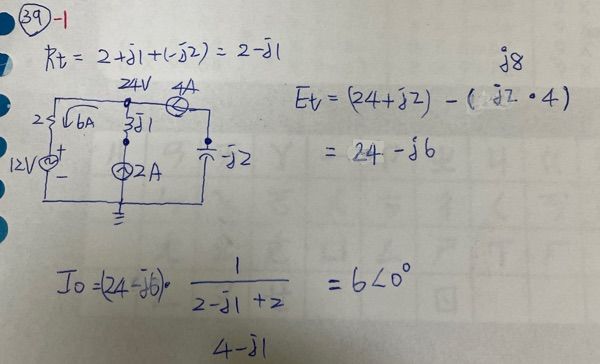 39 -1
Rt = 2+j1+(-j2) = 2-j1
24V 4A
2 6A 3j1
12V + - 2A -j2
j8
Et = (24+j2) - ( j2 · 4)
= 24 -j6
Io = (24-j6)· 1 / 2-j1+2 = 6∠0°
4-j1